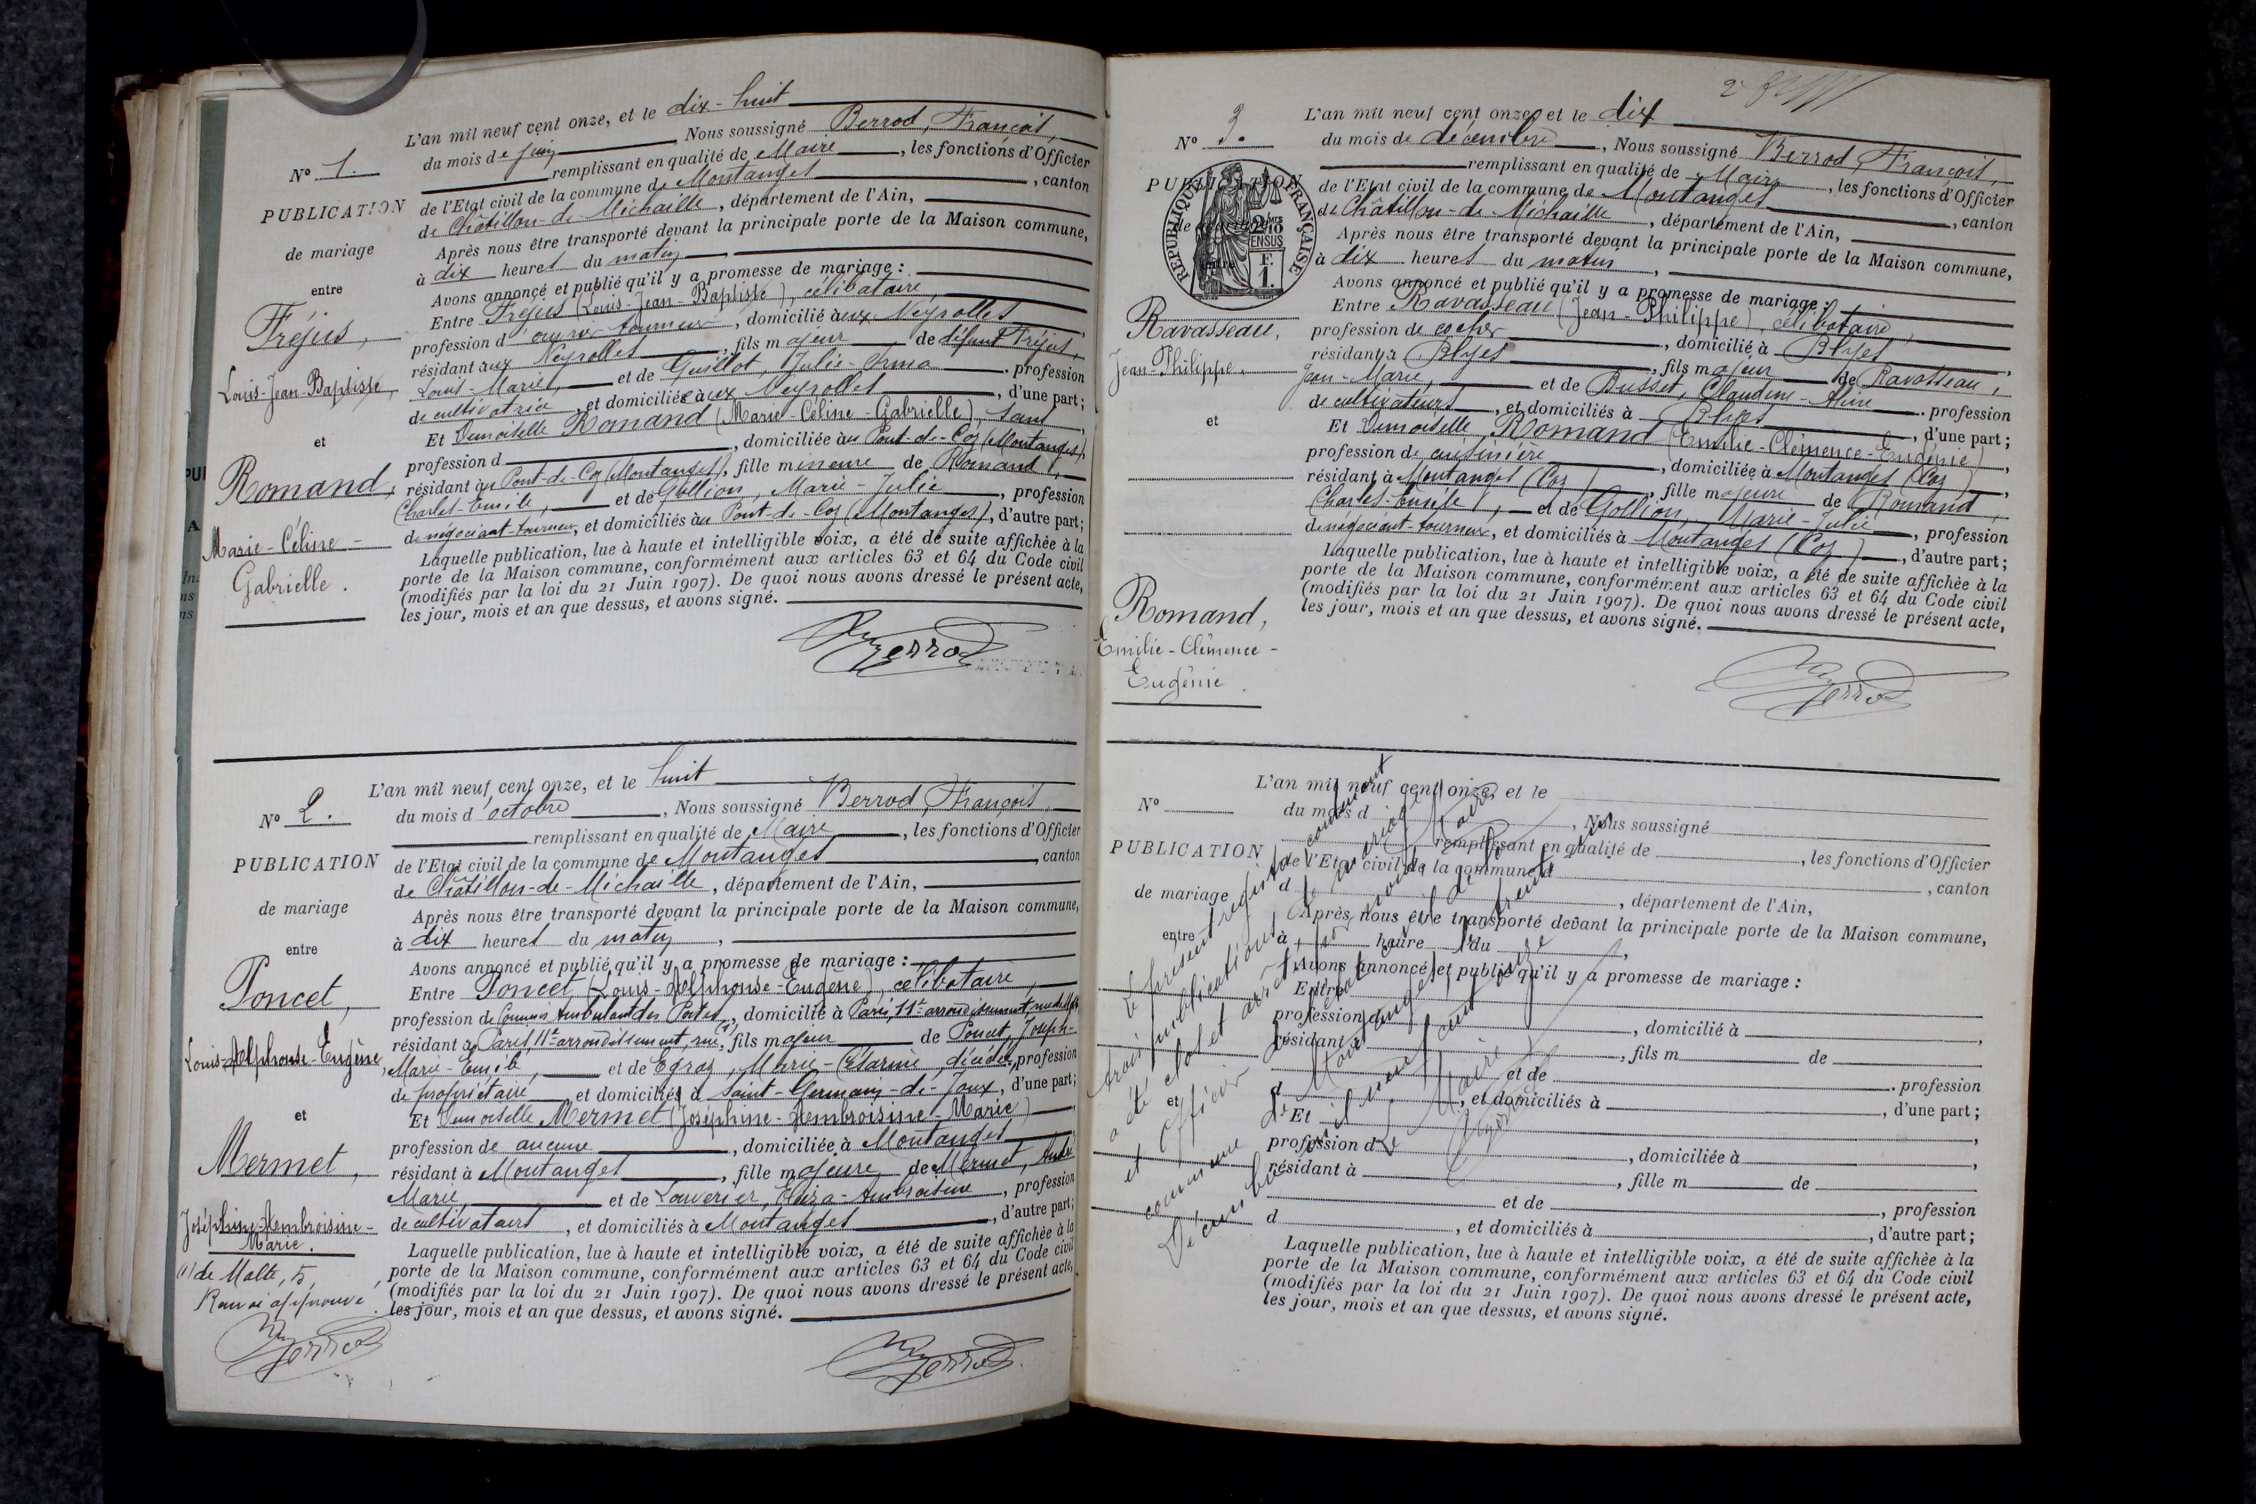 N° 1.
PUBLICATION
de mariage
entre
Fréjus,
Louis-Jean-Baptiste
et
Romand,
Marie-Céline-
Gabrielle.
L'an mil neuf cent onze, et le dix-huit
du mois de juin, Nous soussigné Berrod, François,
remplissant en qualité de Maire, les fonctions d'Officier
de l'Etat civil de la commune de Montanges, canton
de Châtillon-de-Michaille, département de l'Ain,
Après nous être transporté devant la principale porte de la Maison commune,
à dix heures du matin,
Avons annoncé et publié qu'il y a promesse de mariage :
Entre Fréjus (Louis-Jean-Baptiste), célibataire,
profession d'ouvrier tourneur, domicilié aux Neyrolles,
résidant aux Neyrolles, fils majeur de défunt Fréjus,
Louis-Marie, et de Guillot, Julie-Irma. profession
de cultivatrice, et domiciliée aux Neyrolles, d'une part ;
Et Demoiselle Romand (Marie-Céline-Gabrielle), sans
profession d, domiciliée au Pont-de-Coz (Montanges),
résidant au Pont-de-Coz (Montanges), fille mineure de Romand,
Charles-Emile, et de Gollion, Marie-Julie, profession
de négociant-tourneur, et domiciliés au Pont-de-Coz (Montanges), d'autre part ;
Laquelle publication, lue à haute et intelligible voix, a été de suite affichée à la
porte de la Maison commune, conformément aux articles 63 et 64 du Code civil
(modifiés par la loi du 21 Juin 1907). De quoi nous avons dressé le présent acte,
les jour, mois et an que dessus, et avons signé.
Berrod
N° 2.
PUBLICATION
de mariage
entre
Poncet,
Louis-Alphonse-Eugène,
et
Mermet,
Joséphine-Ambroisine-
Marie.
(1) de Malte, 5,
Renvoi approuvé.
Berrod
L'an mil neuf cent onze, et le huit
du mois d'octobre, Nous soussigné Berrod, François,
remplissant en qualité de Maire, les fonctions d'Officier
de l'Etat civil de la commune de Montanges, canton
de Châtillon-de-Michaille, département de l'Ain,
Après nous être transporté devant la principale porte de la Maison commune,
à dix heures du matin,
Avons annoncé et publié qu'il y a promesse de mariage :
Entre Poncet (Louis-Alphonse-Eugène), célibataire,
profession de Commis Ambulant des Postes, domicilié à Paris, 11e arrondissement, rue de Malte
résidant à Paris, 11e arrondissement, rue (1), fils majeur de Poncet, Joseph-
Marie-Emile, et de Egraz, Marie-Césarine, décédée, profession
de propriétaire, et domiciliés à Saint-Germain-de-Joux, d'une part ;
Et Demoiselle Mermet (Joséphine-Ambroisine-Marie)
profession de aucune, domiciliée à Montanges
résidant à Montanges, fille majeure de Mermet, André
Marie, et de Louverier, Eliza-Ambroisine, profession
de cultivateurs, et domiciliés à Montanges, d'autre part ;
Laquelle publication, lue à haute et intelligible voix, a été de suite affichée à la
porte de la Maison commune, conformément aux articles 63 et 64 du Code civil
(modifiés par la loi du 21 Juin 1907). De quoi nous avons dressé le présent acte,
les jour, mois et an que dessus, et avons signé.
Berrod
N° 3.
PUBLICATION
de mariage
entre
RÉPUBLIQUE FRANÇAISE
2/10
EN SUS
F.
1.
Ravasseau,
Jean-Philippe.
et
Romand,
Emilie-Clémence-
Eugénie.
L'an mil neuf cent onze, et le dix
du mois de décembre, Nous soussigné Berrod, François,
remplissant en qualité de Maire, les fonctions d'Officier
de l'Etat civil de la commune de Montanges, canton
de Châtillon-de-Michaille, département de l'Ain,
Après nous être transporté devant la principale porte de la Maison commune,
à dix heures du matin,
Avons annoncé et publié qu'il y a promesse de mariage :
Entre Ravasseau (Jean-Philippe), célibataire,
profession de cocher, domicilié à Blyes,
résidant à Blyes, fils majeur de Ravasseau,
Jean-Marie, et de Busset, Claudine-Aline. profession
de cultivateurs, et domiciliés à Blyes, d'une part ;
Et Demoiselle Romand (Emilie-Clémence-Eugénie),
profession de cuisinière, domiciliée à Montanges (Coz),
résidant à Montanges (Coz), fille majeure de Romand,
Charles-Emile, et de Gollion, Marie-Julie, profession
de négociant-tourneur, et domiciliés à Montanges (Coz), d'autre part ;
Laquelle publication, lue à haute et intelligible voix, a été de suite affichée à la
porte de la Maison commune, conformément aux articles 63 et 64 du Code civil
(modifiés par la loi du 21 Juin 1907). De quoi nous avons dressé le présent acte,
les jour, mois et an que dessus, et avons signé.
Berrod
N°
PUBLICATION
de mariage
entre
et
L'an mil neuf cent onze, et le
du mois d, Nous soussigné
remplissant en qualité de, les fonctions d'Officier
de l'Etat civil de la commune d, canton
d, département de l'Ain,
Après nous être transporté devant la principale porte de la Maison commune,
à heure du,
Avons annoncé et publié qu'il y a promesse de mariage :
Entre
profession d, domicilié à,
résidant à, fils m de
et de. profession
d, et domiciliés à, d'une part ;
Et,
profession d, domiciliée à,
résidant à, fille m de
et de, profession
d, et domiciliés à, d'autre part ;
Laquelle publication, lue à haute et intelligible voix, a été de suite affichée à la
porte de la Maison commune, conformément aux articles 63 et 64 du Code civil
(modifiés par la loi du 21 Juin 1907). De quoi nous avons dressé le présent acte,
les jour, mois et an que dessus, et avons signé.
Le présent registre contenant
trois publications de mariage
a été clos et arrêté par nous, Maire
et Officier de l'état civil de la
commune de Montanges, le trente un
Décembre mil neuf cent onze
Le Maire
Berrod